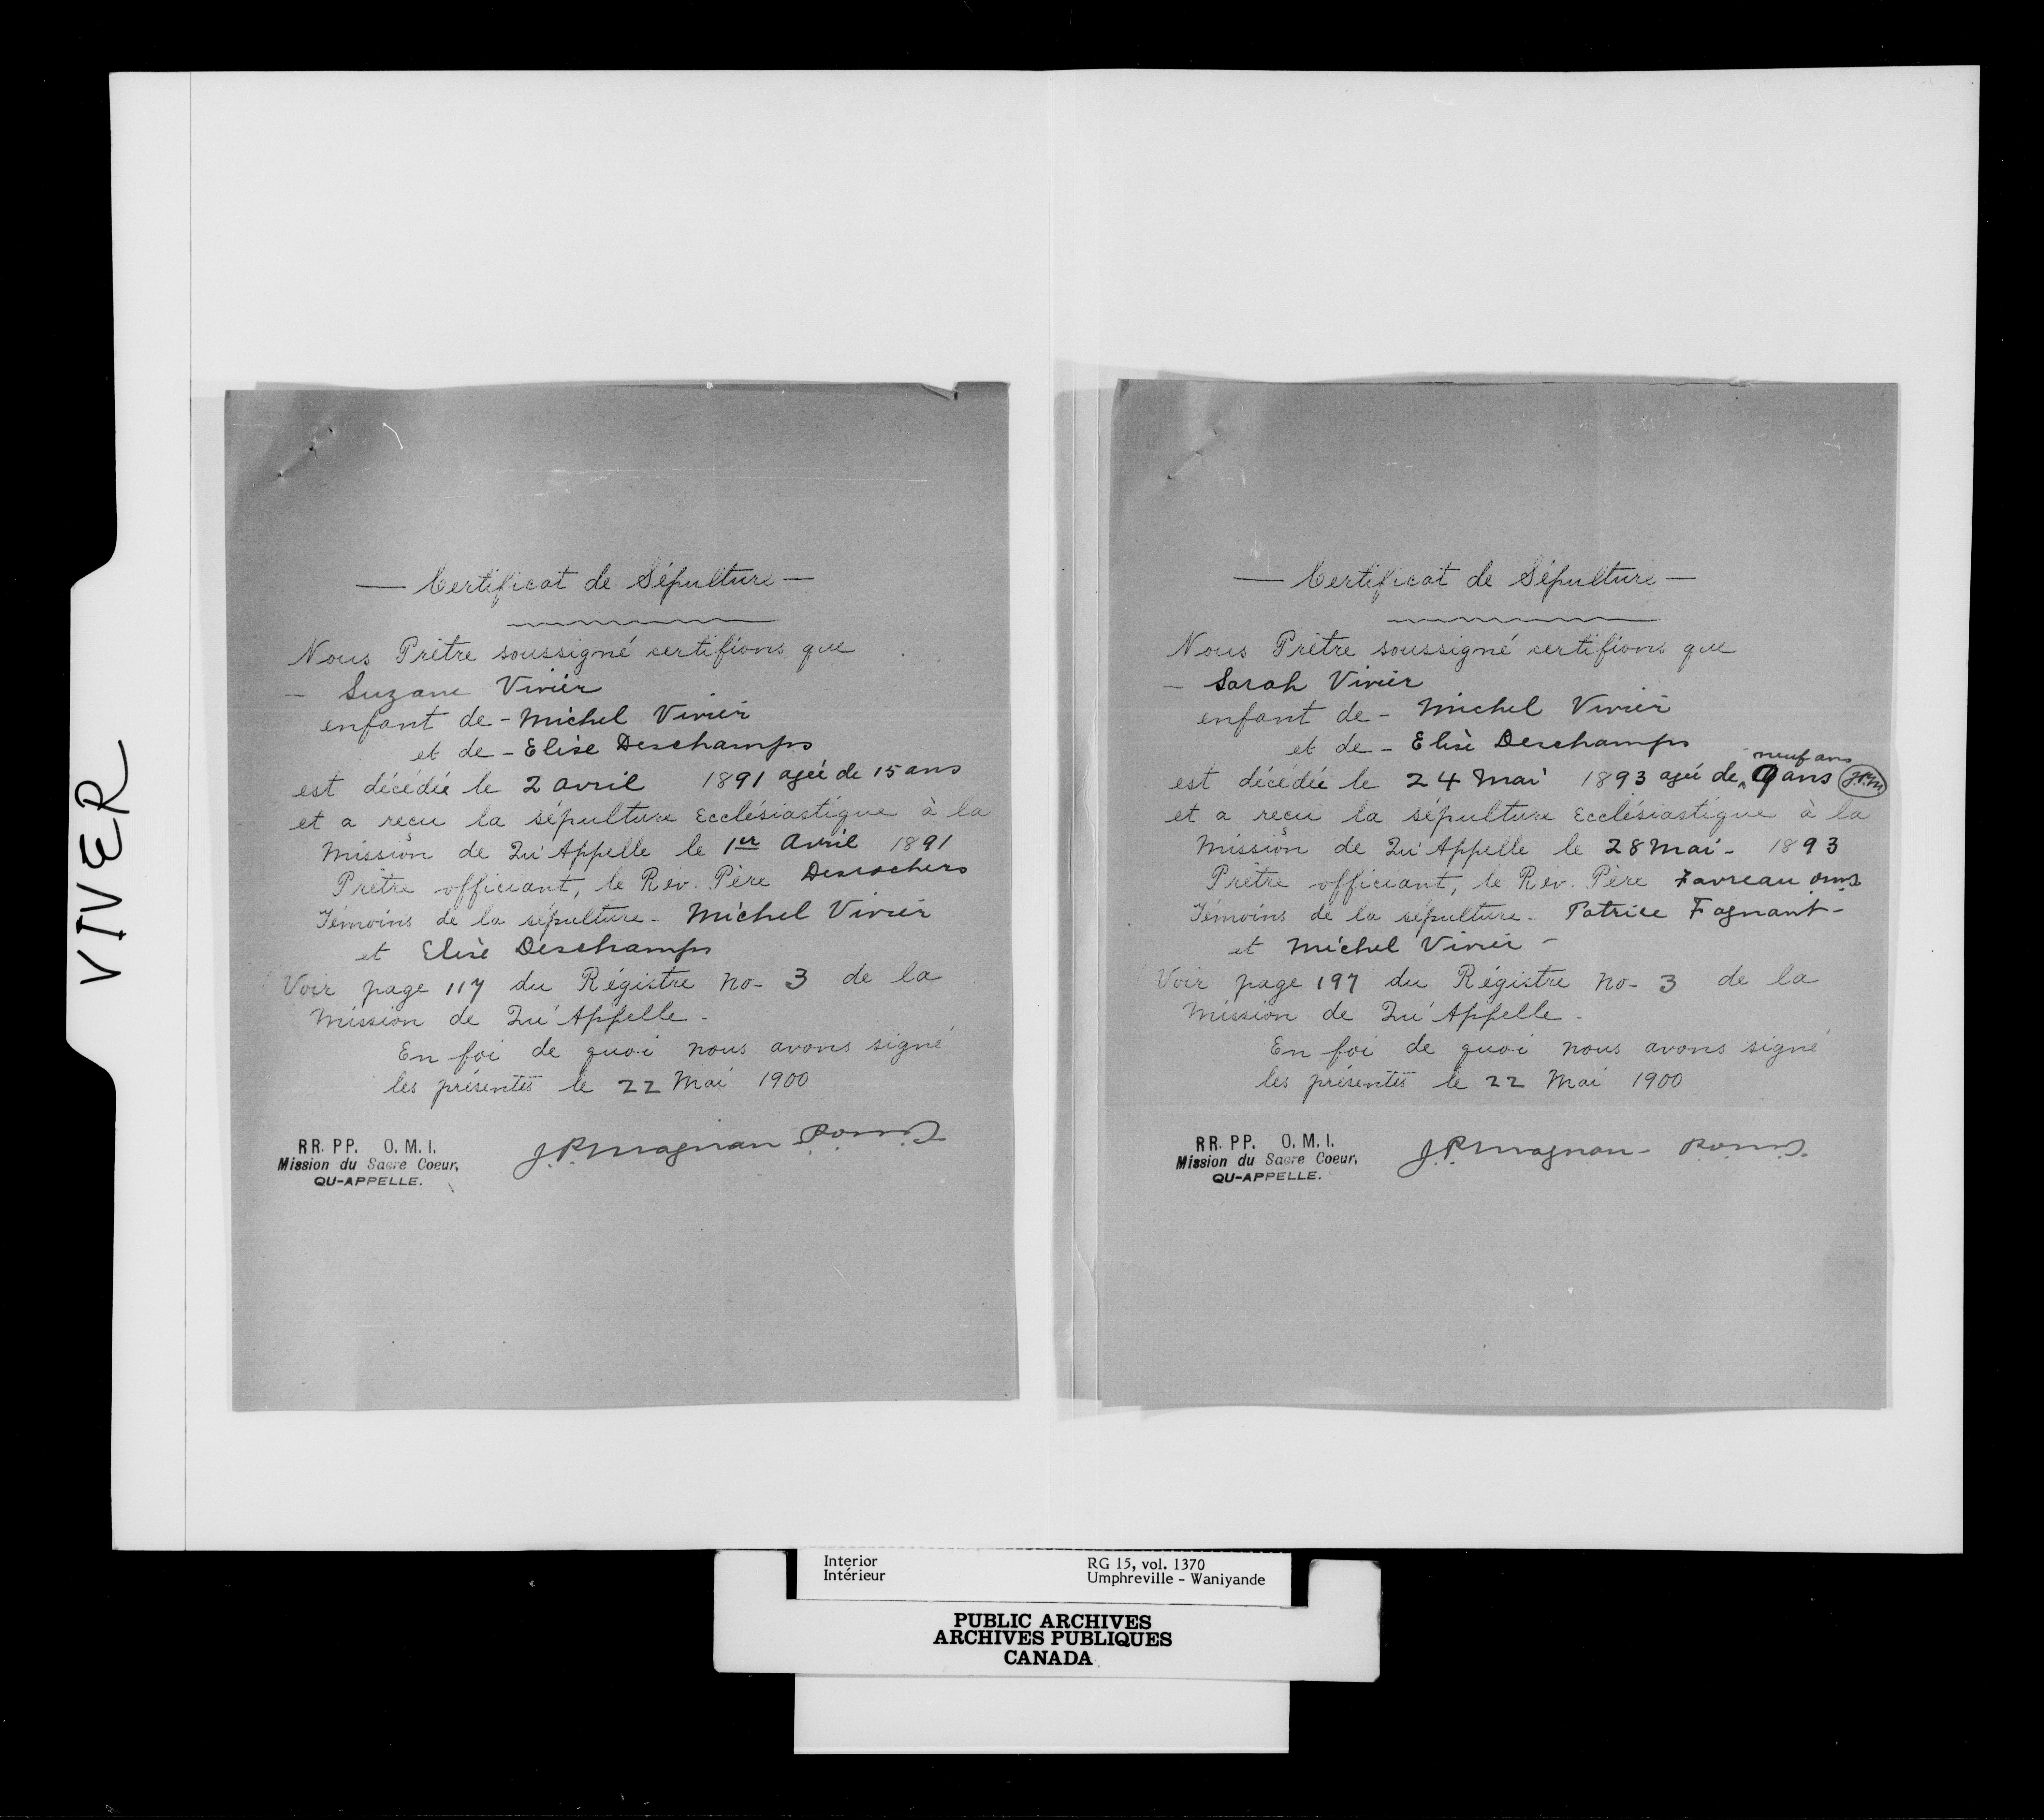 VIVER
— Certificat de Sépulture —
Nous Prêtre soussigné certifions que
— Suzane Vivier
enfant de - Michel Vivier
et de - Elise Deschamps
est décédée le 2 avril 1891 agée de 15 ans
et a reçu la sépulture Ecclésiastique à la
Mission de Qu'Appelle le 1er Avril 1891
Prêtre officiant, le Rév. Père Desrochers
Témoins de la sépulture - Michel Vivier
et Elise Deschamps
Voir page 117 du Régistre No- 3 de la
Mission de Qu'Appelle -
En foi de quoi nous avons signé
les présentes le 22 Mai 1900
J.P. Magnan P.O.M.I.
RR. PP. O. M. I.
Mission du Sacre Coeur,
QU-APPELLE.
— Certificat de Sépulture —
Nous Prêtre soussigné certifions que
— Sarah Vivier
enfant de - Michel Vivier
et de - Elise Deschamps
neuf ans
est décédée le 24 Mai 1893 agée de 9 ans J.P.M.
et a reçu la sépulture Ecclésiastique à la
Mission de Qu'Appelle le 28 Mai - 1893
Prêtre officiant, le Rév. Père Favreau omi
Témoins de la sépulture - Patrice Fagnant -
et Michel Vivier -
Voir page 197 du Régistre No- 3 de la
Mission de Qu'Appelle -
En foi de quoi nous avons signé
les présentes le 22 Mai 1900
J.P. Magnan - P.O.M.I.
RR. PP. O. M. I.
Mission du Sacre Coeur,
QU-APPELLE.
Interior RG 15, vol. 1370
Intérieur Umphreville - Waniyande
PUBLIC ARCHIVES
ARCHIVES PUBLIQUES
CANADA